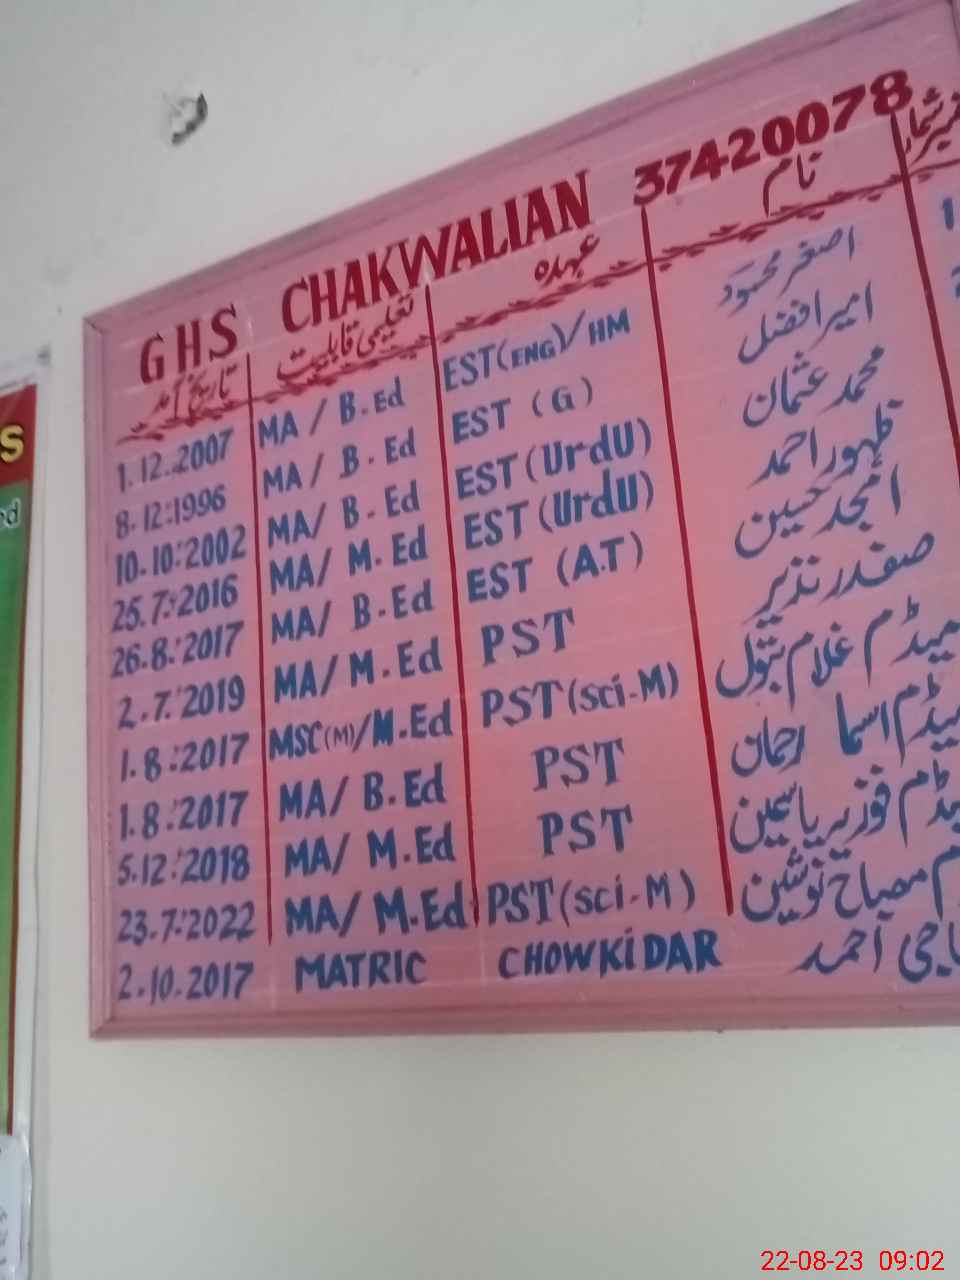 GHS CHAKWALIAN 37420078
تاریخ آمد تعلیمی قابلیت عہدہ نام نمبر شمار
1.12.2007 MA / B.Ed EST(ENG)/HM اصغر محمود 1
8.12.1996 MA / B.Ed EST (G) امیر افضل
10.10.2002 MA/ B.Ed EST (UrdU) محمد عثمان
25.7.2016 MA/ M.Ed EST (UrdU) ظہور احمد
26.8.2017 MA/ B.Ed EST (A.T) امجد حسین
2.7.2019 MA/ M.Ed PST صفدر نذیر
1.8.2017 MSC(M)/M.Ed PST (sci-M) میڈم غلام بتول
1.8.2017 MA/ B.Ed PST میڈم اسما رحمان
5.12.2018 MA/ M.Ed PST میڈم فوزیہ یاسمین
23.7.2022 MA/ M.Ed PST (sci-M) مصباح نوشین
2.10.2017 MATRIC CHOWKiDAR احمد
S
22-08-23 09:02